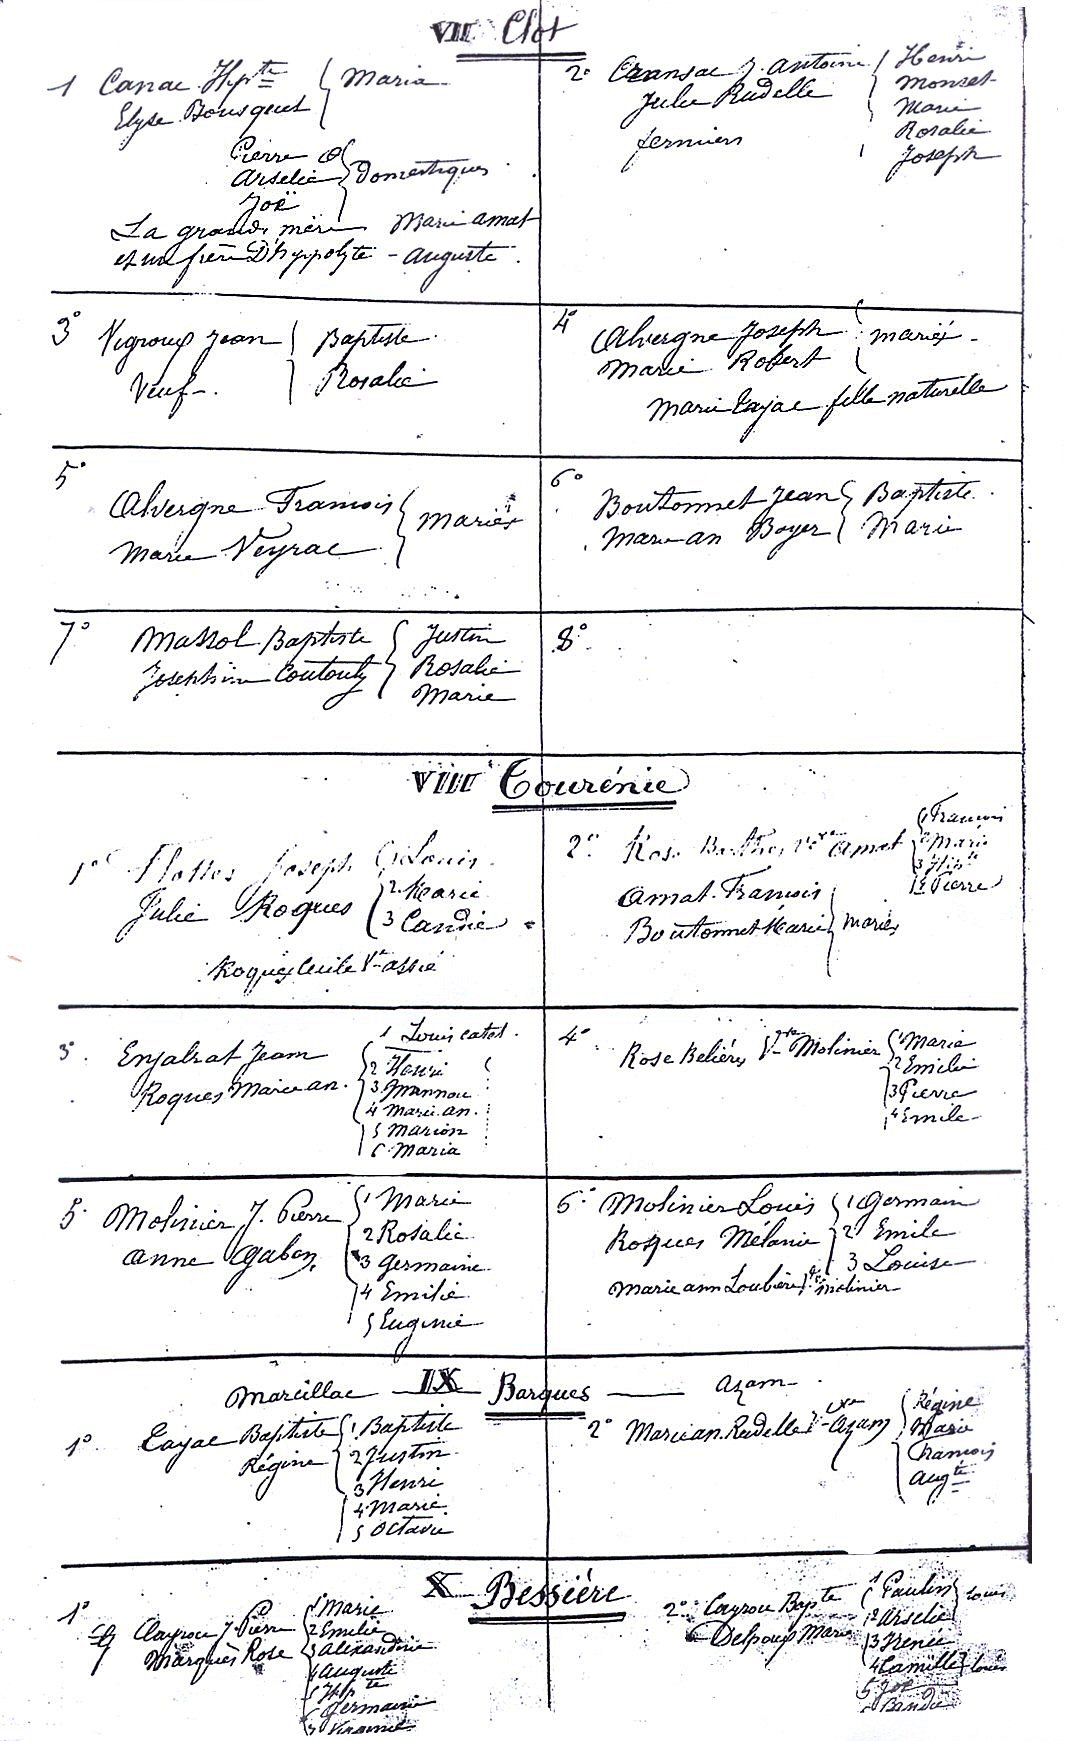 VII Clot
1 Canac Hypte { Maria
Elyse Bousquet
Pierre
Arselie } Domestiques
Joë
La grande mère Marie Amat
et un frère D'hyppolyte - Auguste.
2° Cransac J. Antoine { Henri
Julie Rudelle
Marie
fermiers
Rosalie
Joseph
3° Vigroux Jean { Baptiste
Veuf-. Rosalie
4° Alvergne Joseph { mariés -
Marie Robert
Marie Cayac fille naturelle
5° Alvergne Francois { Mariés
Marie Veyrac
6° Boutonnet Jean { Baptiste.
Marie an Boyer { Marie
7° Massol Baptiste { Justin
Josephine Coutouly Rosalie
Marie
8°
VIII Tourénie
1° Flottes Joseph { 1 Louis
Julie Roques 2 Marie
3 Candie
Roques Cecile Vve Assié
2° Rose Barthes Vve Amat { 1 Francois
2 Marie
3 Hipte
4 Pierre
Amat Francois
Boutonnet Marie } mariés
3° Enjalrat Jean { 1 Louis catet.
Roques Marie an. 2 Henri
3 Mannou
4 Marie an.
5 Marion
6 Maria
4° Rose Belières Vve Molinier { 1 Maria
2 Emilie
3 Pierre
4 Emile
5° Molinier J. Pierre { 1 Marie
Anne Gaben 2 Rosalie
3 Germaine
4 Emilie
5 Eugenie
6° Molinier Louis { 1 Germain
Roques Mélanie 2 Emile
3 Louise
Marie ann Loubière Vve Molinier
Marcillac — IX Barques — Azam
1° Cayac Baptiste { 1 Baptiste
Régine 2 Justin
3 Henri
4 Marie
5 Octavie
2° Marie an. Rudelle Vve Azam { Régine
Marie
Francois
Augte
X Bessiére
1° Cayrou J Pierre { 1 Marie
Marquès Rose 2 Emilie
3 Alexandrine
4 Auguste
5 Hipte
6 Germaine
7 Virginie
2° Cayrou Bapte { 1 Paulin } loués
Delpoux Marie 2 Arselie
3 Irenée
4 Camille } loués
5 Joë